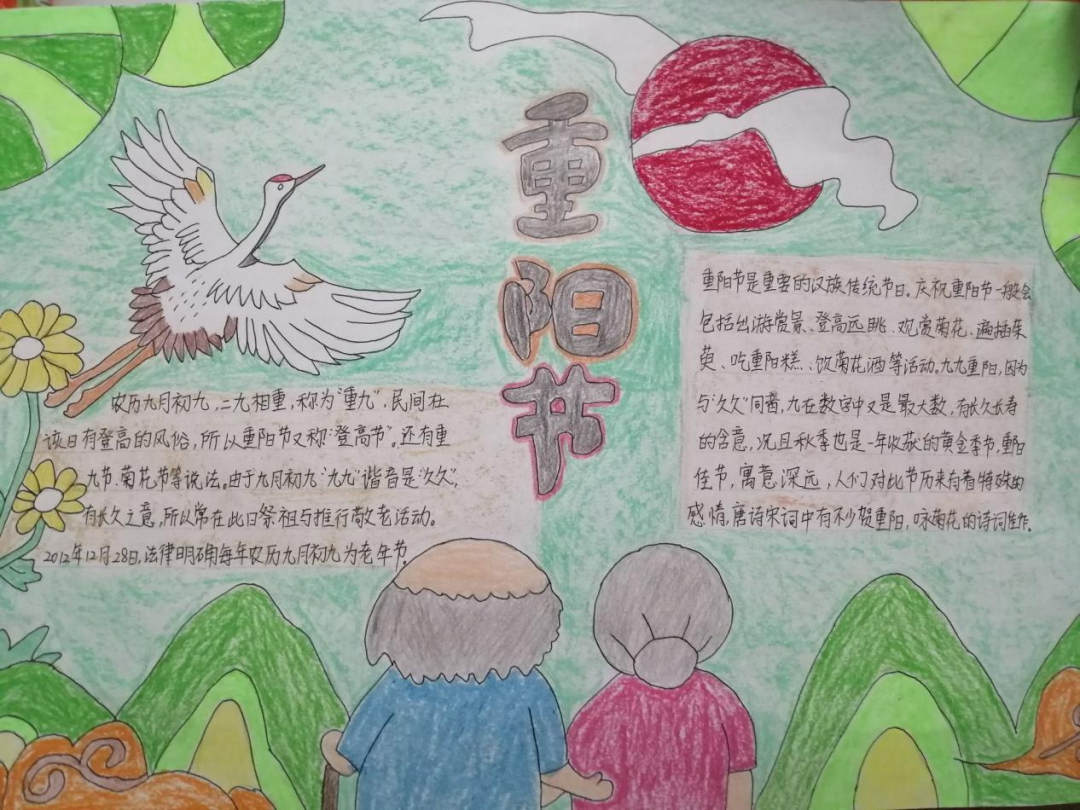 重阳节
农历九月初九,二九相重,称为“重九”,民间在
该日有登高的风俗,所以重阳节又称“登高节”。还有重
九节、菊花节等说法。由于九月初九“九九”谐音是“久久”,
有长久之意,所以常在此日祭祖与推行敬老活动。
2012年12月28日,法律明确每年农历九月初九为老年节。
重阳节是重要的汉族传统节日。庆祝重阳节一般会
包括出游赏景、登高远眺、观赏菊花、遍插茱
萸、吃重阳糕、饮菊花酒等活动。九九重阳,因为
与“久久”同音,九在数字中又是最大数,有长久长寿
的含意,况且秋季也是一年收获的黄金季节,重阳
佳节,寓意深远,人们对此节历来有着特殊的
感情,唐诗宋词中有不少贺重阳,咏菊花的诗词佳作。